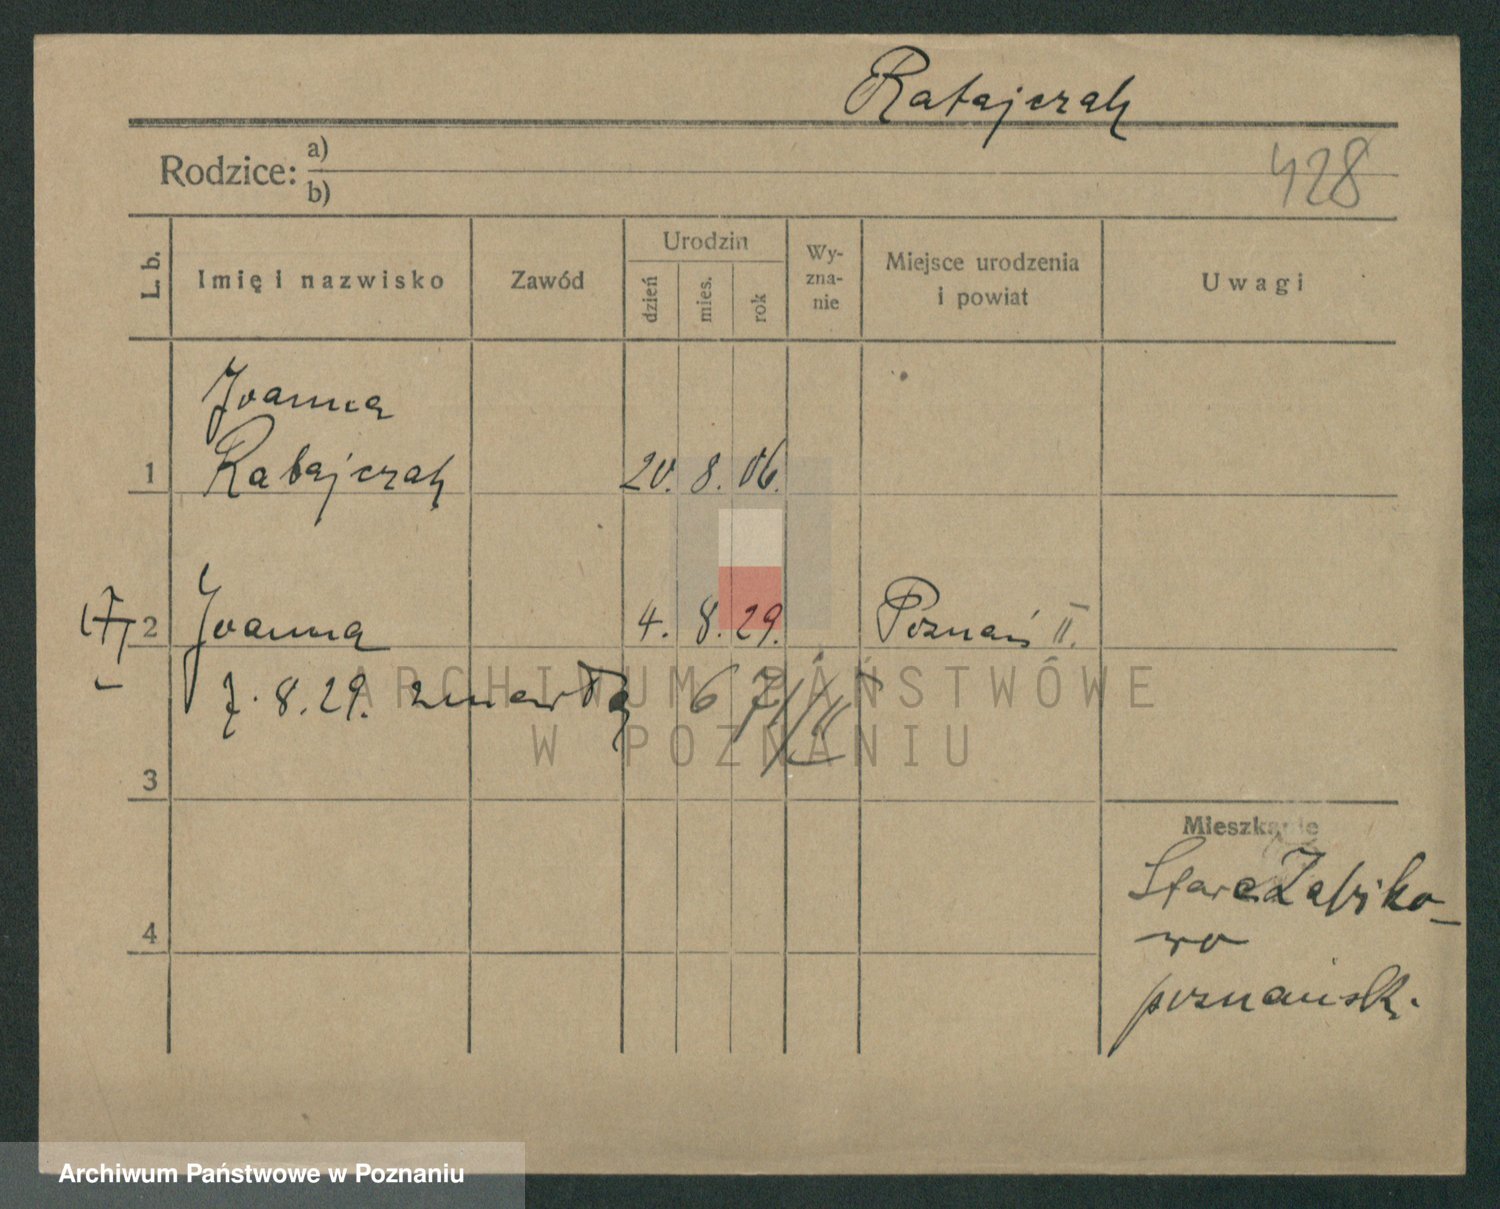 Ratajczak
Rodzice: a)
b)
428
L. b.
Imię i nazwisko
Zawód
Urodzin
dzień
mies.
rok
Wy-
zna-
nie
Miejsce urodzenia
i powiat
Uwagi
Joanna
1 Ratajczak 20. 8. 06.
2 Joanna 4. 8. 29. Poznań II.
7. 8. 29. zmarła
3
Mieszkanie
Stare Zabiko-
wo
poznańsk.
4
ARCHIWUM PAŃSTWOWE
W POZNANIU
Archiwum Państwowe w Poznaniu